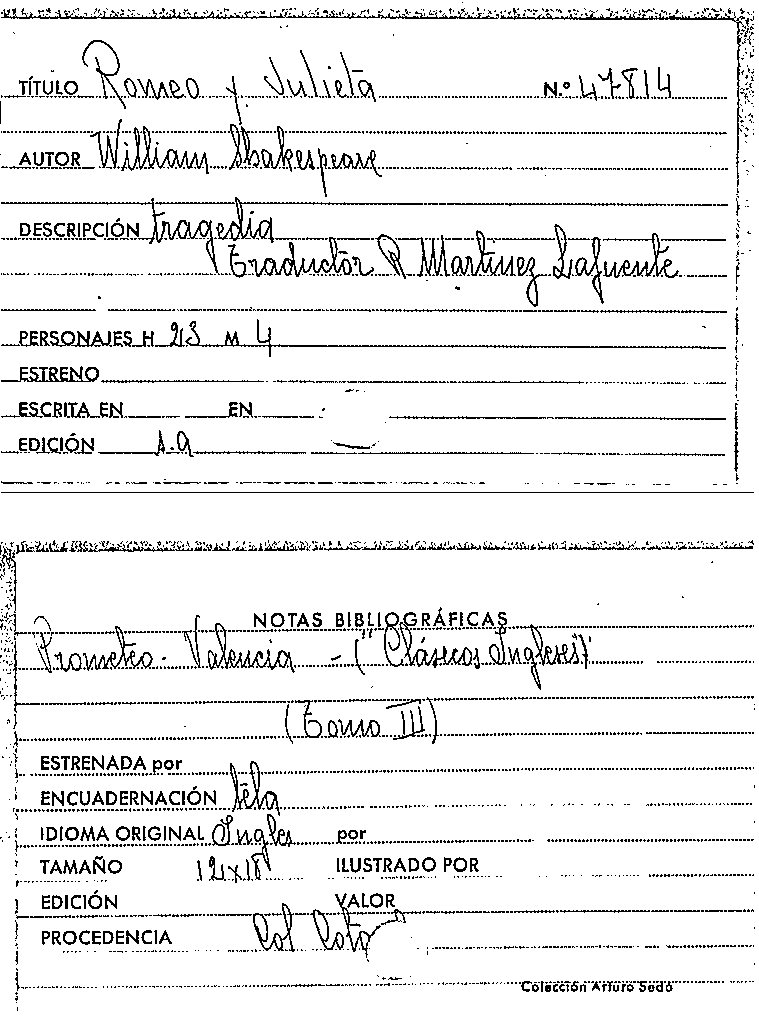 TÍTULO Romeo y Julieta N.º 47814
AUTOR William Shakespeare
DESCRIPCIÓN tragedia
Traductor R Martinez Lafuente
PERSONAJES H 23 M 4
ESTRENO
ESCRITA EN EN
EDICIÓN s.a
NOTAS BIBLIOGRÁFICAS
Prometeo - Valencia - ("Clásicos Ingleses")
(Tomo III)
ESTRENADA por
ENCUADERNACIÓN tela
IDIOMA ORIGINAL Ingles por
TAMAÑO 12x18 ILUSTRADO POR
EDICIÓN VALOR
PROCEDENCIA Col Coto
Colección Arturo Sedó